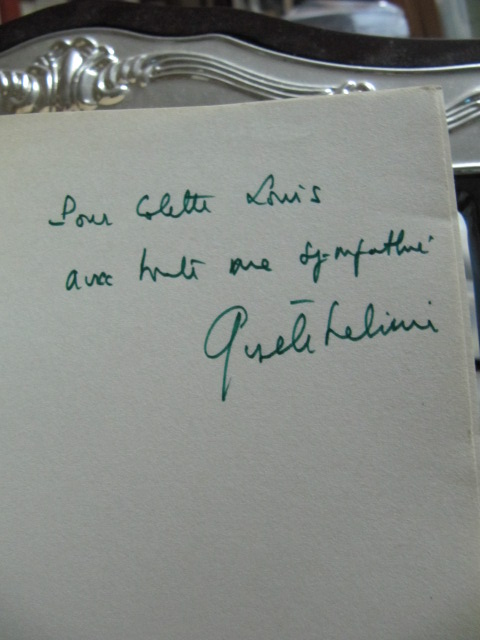 Pour Colette Louis
avec toute ma sympathie
Gisèle Halimi